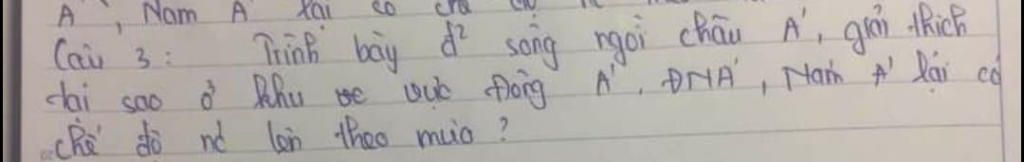 A', Nam A' lại có chế
Câu 3: Trình bày đ² sông ngòi châu A', giải thích
tại sao ở khu vực Đông A', ĐNA', Nam A' lại có
chế độ nc lên theo mùa?